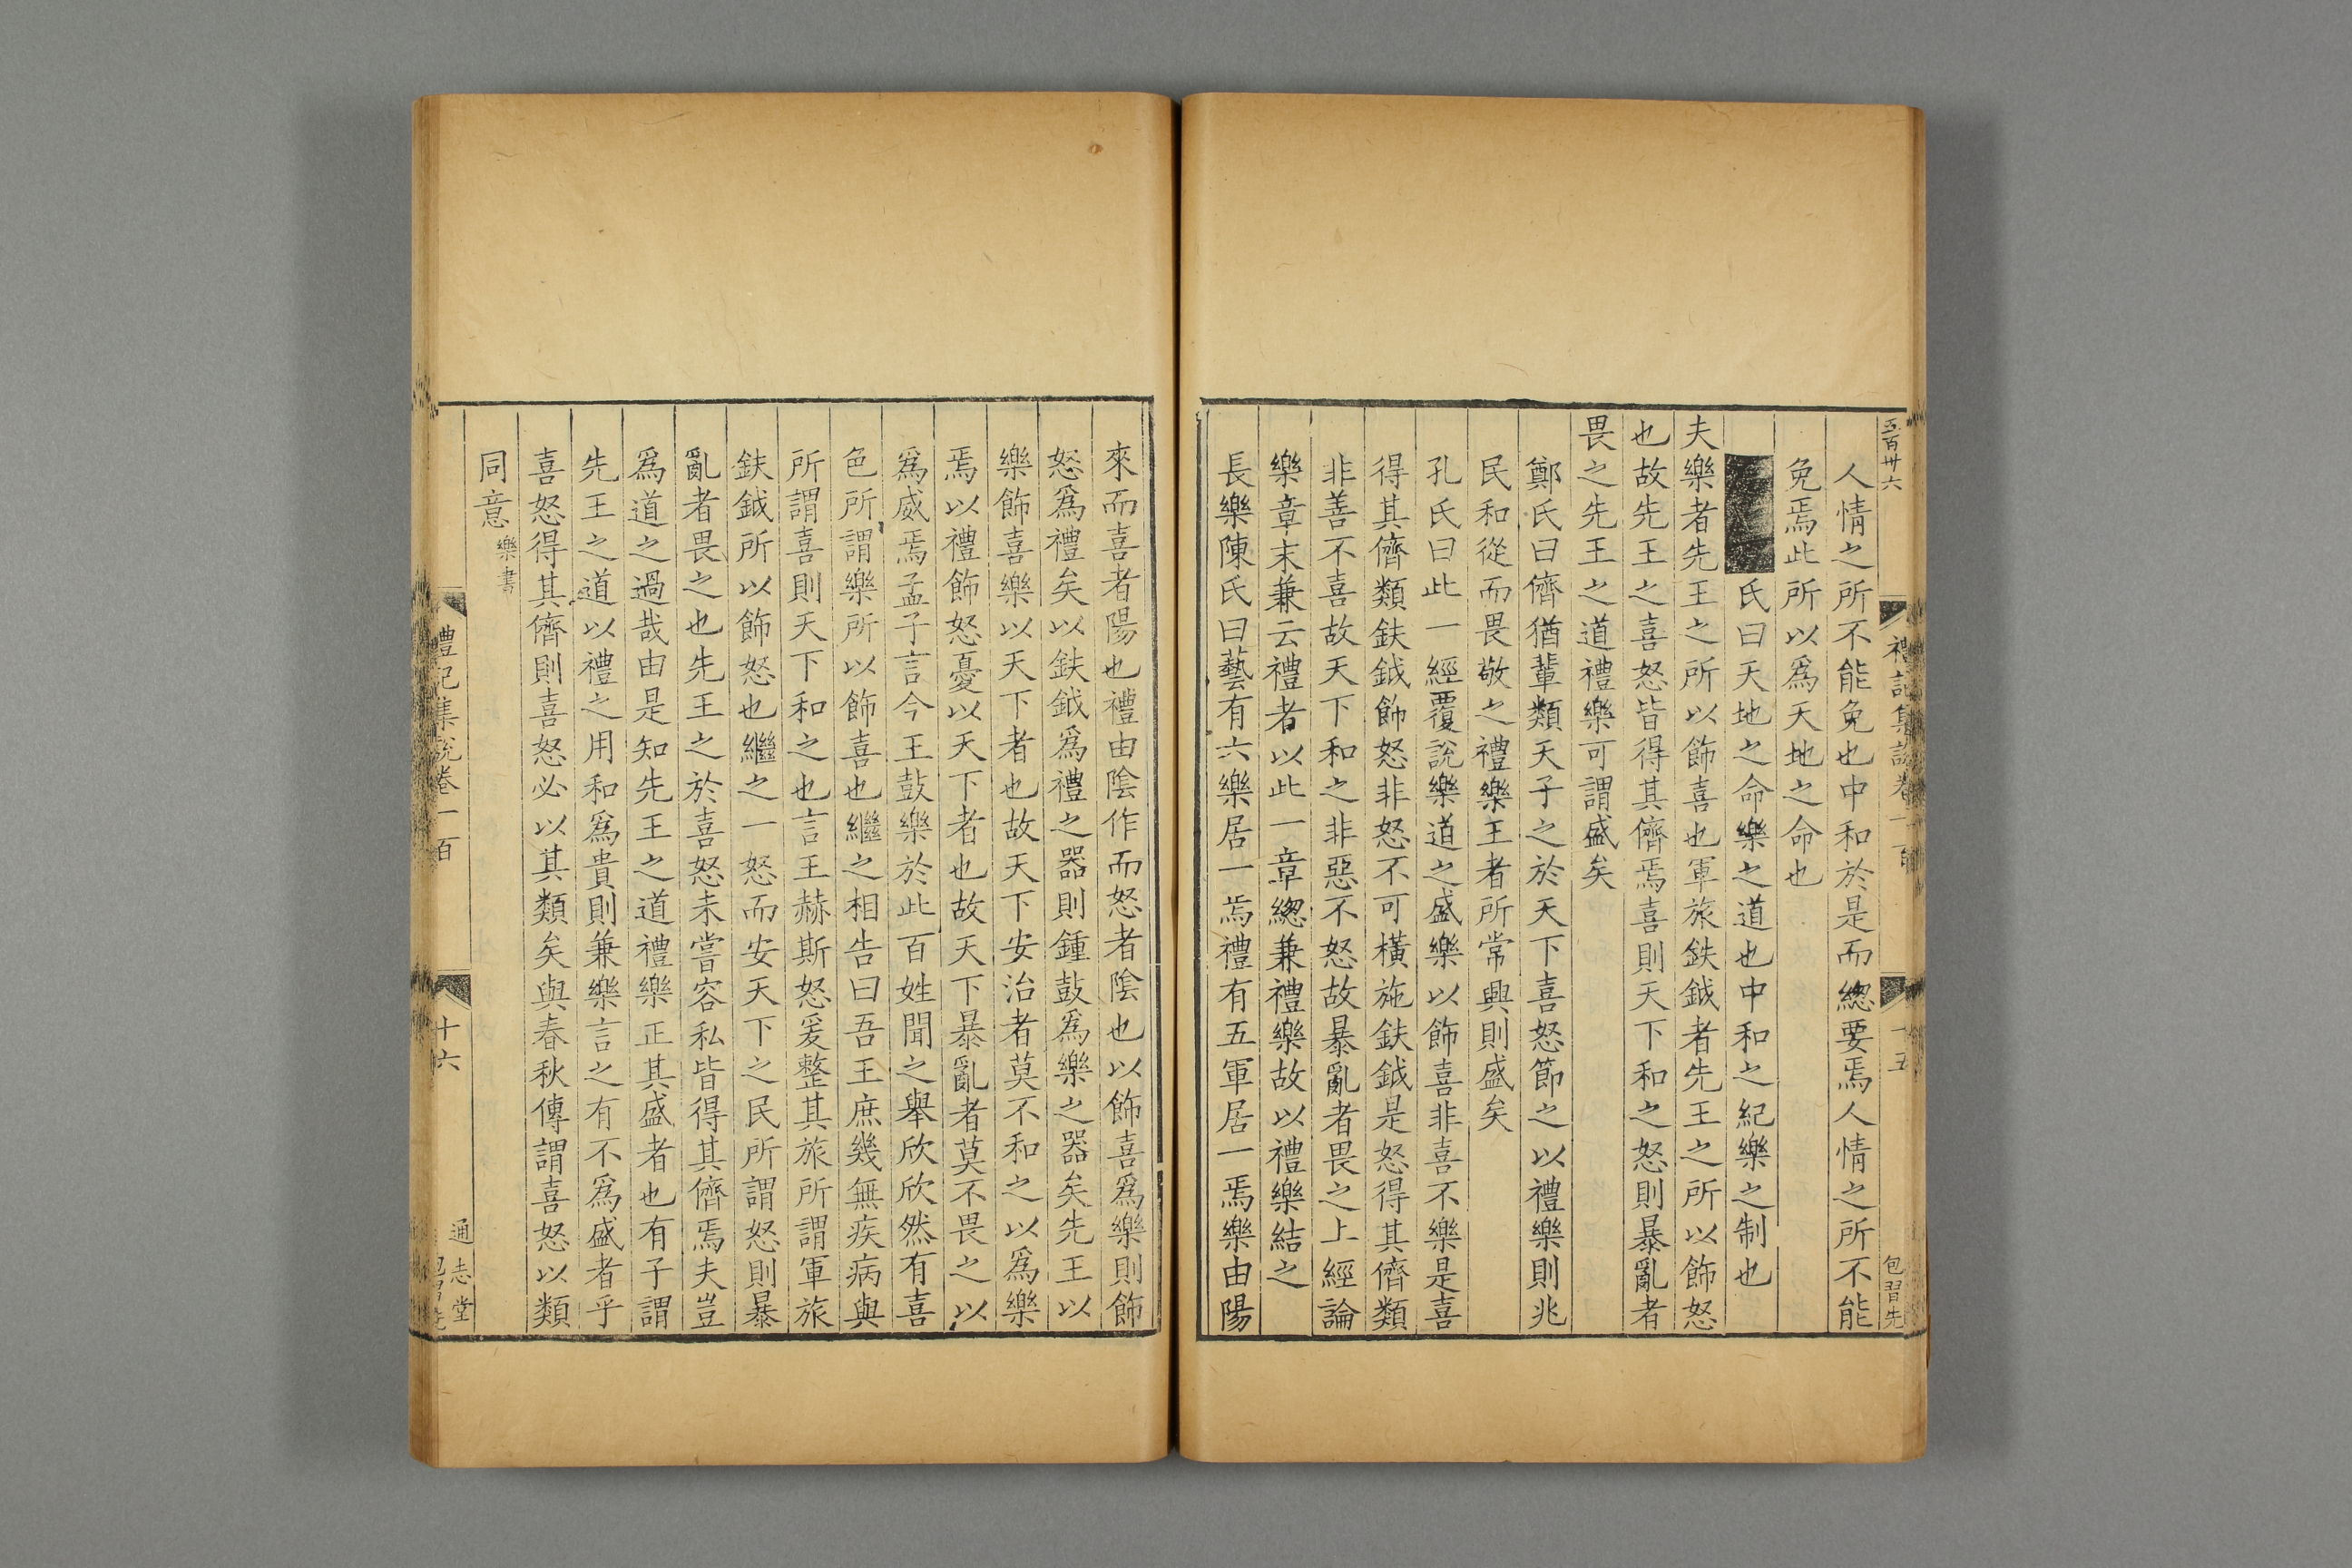 五百卅六
禮記集說卷一百
十五
包習先
人情之所不能免也中和於是而緫要焉人情之所不能
免焉此所以爲天地之命也
氏曰天地之命樂之道也中和之紀樂之制也
夫樂者先王之所以飾喜也軍旅鈇鉞者先王之所以飾怒
也故先王之喜怒皆得其儕焉喜則天下和之怒則暴亂者
畏之先王之道禮樂可謂盛矣
鄭氏曰儕猶輩類天子之於天下喜怒節之以禮樂則兆
民和從而畏敬之禮樂王者所常興則盛矣
孔氏曰此一經覆說樂道之盛樂以飾喜非喜不樂是喜
得其儕類鈇鉞飾怒非怒不可橫施鈇鉞是怒得其儕類
非善不喜故天下和之非惡不怒故暴亂者畏之上經論
樂章末兼云禮者以此一章緫兼禮樂故以禮樂結之
長樂陳氏曰藝有六樂居一焉禮有五軍居一焉樂由陽
來而喜者陽也禮由陰作而怒者陰也以飾喜爲樂則飾
怒爲禮矣以鈇鉞爲禮之器則鍾鼓爲樂之器矣先王以
樂飾喜樂以天下者也故天下安治者莫不和之以爲樂
焉以禮飾怒憂以天下者也故天下暴亂者莫不畏之以
爲威焉孟子言今王鼓樂於此百姓聞之舉欣欣然有喜
色所謂樂所以飾喜也繼之相告曰吾王庶幾無疾病與
所謂喜則天下和之也言王赫斯怒爰整其旅所謂軍旅
鈇鉞所以飾怒也繼之一怒而安天下之民所謂怒則暴
亂者畏之也先王之於喜怒未嘗容私皆得其儕焉夫豈
爲道之過哉由是知先王之道禮樂正其盛者也有子謂
先王之道以禮之用和爲貴則兼樂言之有不爲盛者乎
喜怒得其儕則喜怒必以其類矣與春秋傳謂喜怒以類
同意樂書
禮記集說卷一百
十六
通志堂